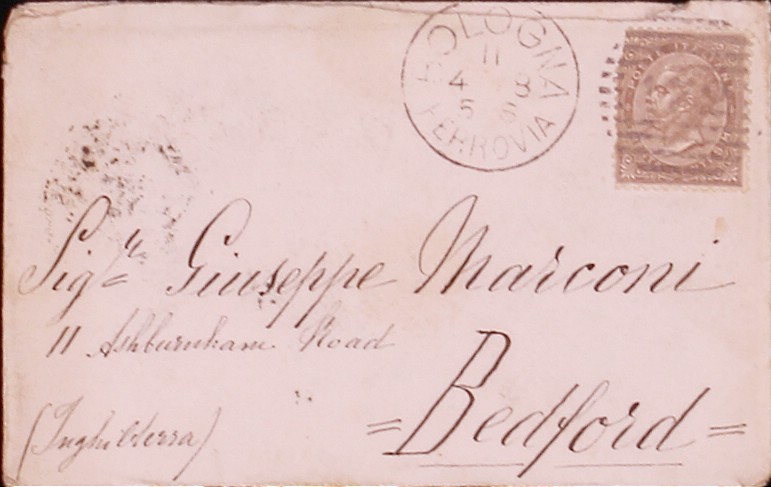 BOLOGNA
11
4 8
5 S
FERROVIA
Sig.r Giuseppe Marconi
11 Ashburnham Road
= Bedford =
(Inghilterra)